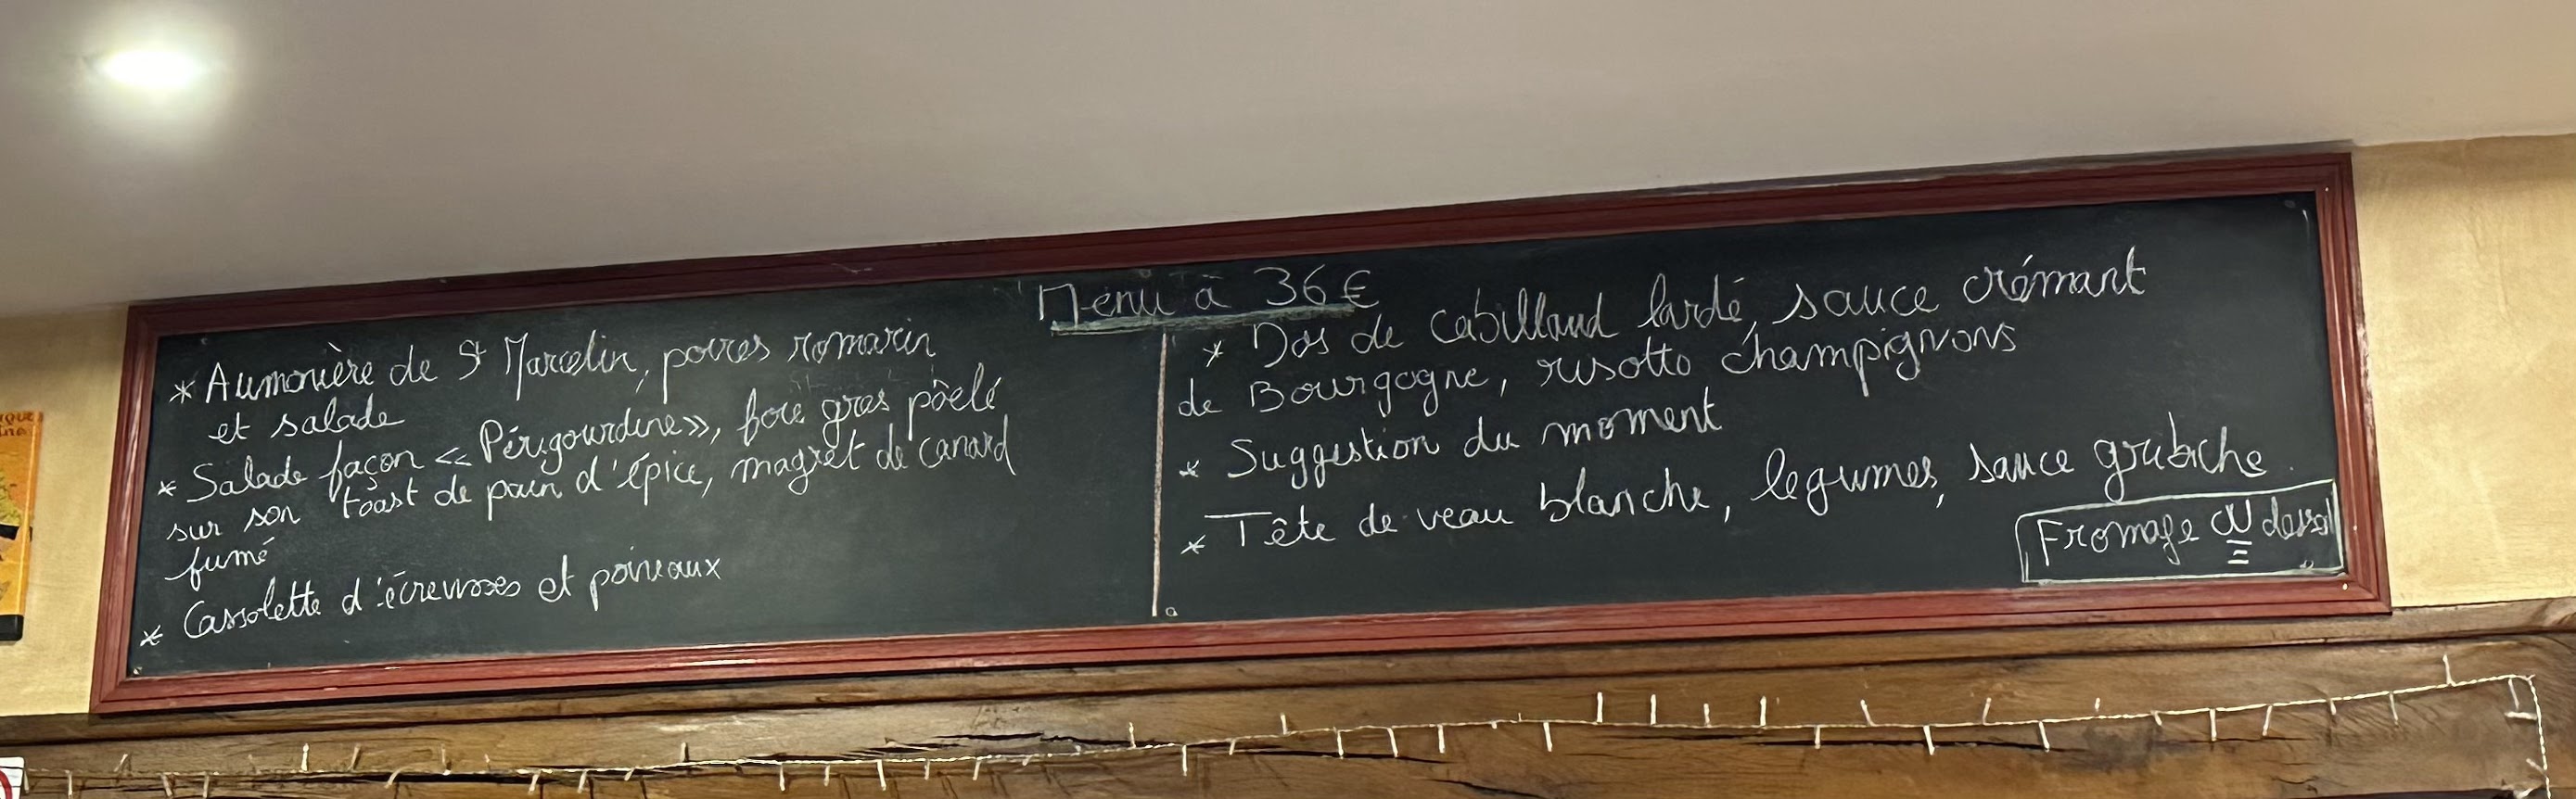 Menu à 36€
* Aumonière de St Marcelin, poires romarin
et salade
* Salade façon << Périgourdine >>, foie gras poêlé
sur son toast de pain d'épice, magret de canard
fumé
* Cassolette d'écrevisses et poireaux
* Dos de cabillaud lardé, sauce crémant
de Bourgogne, risotto champignons
* Suggestion du moment
* Tête de veau blanche, legumes, sauce gribiche.
Fromage OU dessert